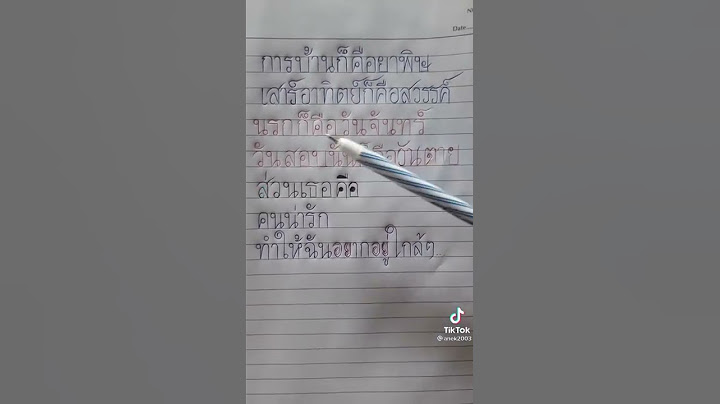 Date
การบ้านก็คือยาพิษ
เสาร์อาทิตย์ก็คือสวรรค์
นรกก็คือวันจันทร์
วันสอบนั้นก็คือวันตาย
ส่วนเธอคือ
คนน่ารัก
ทำให้ฉันอยากอยู่ใกล้ๆ
TikTok
@anek2003